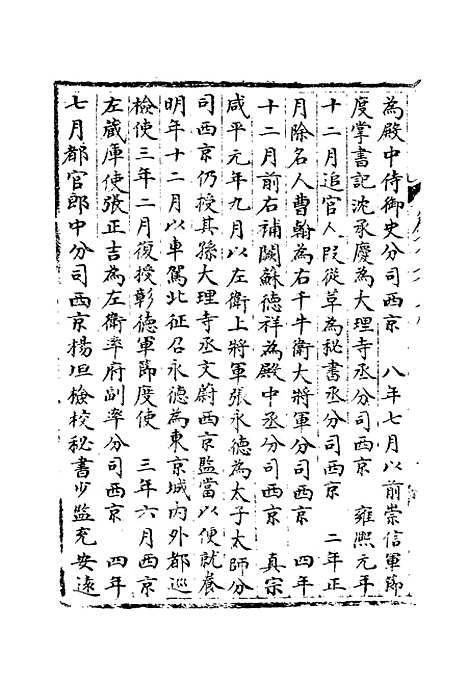 為殿中侍御史分司西京　八年七月以前崇信軍節
度掌書記沈承慶為大理寺丞分司西京　雍熙元年
十二月追官人段從革為秘書丞分司西京　二年正
月除名人曹翰為右千牛衛大將軍分司西京　四年
十二月前右補闕蘇德祥為殿中丞分司西京　真宗
咸平元年九月以左衛上將軍張永德為太子太師分
司西京仍授其孫大理寺丞文蔚西京監當以便就養
明年十二月以車駕北征召永德為東京城內外都巡
檢使三年二月復授彰德軍節度使　三年六月西京
左藏庫使張正吉為左衛率府副率分司西京　四年
七月都官郎中分司西京楊坦檢校秘書少監充安遠